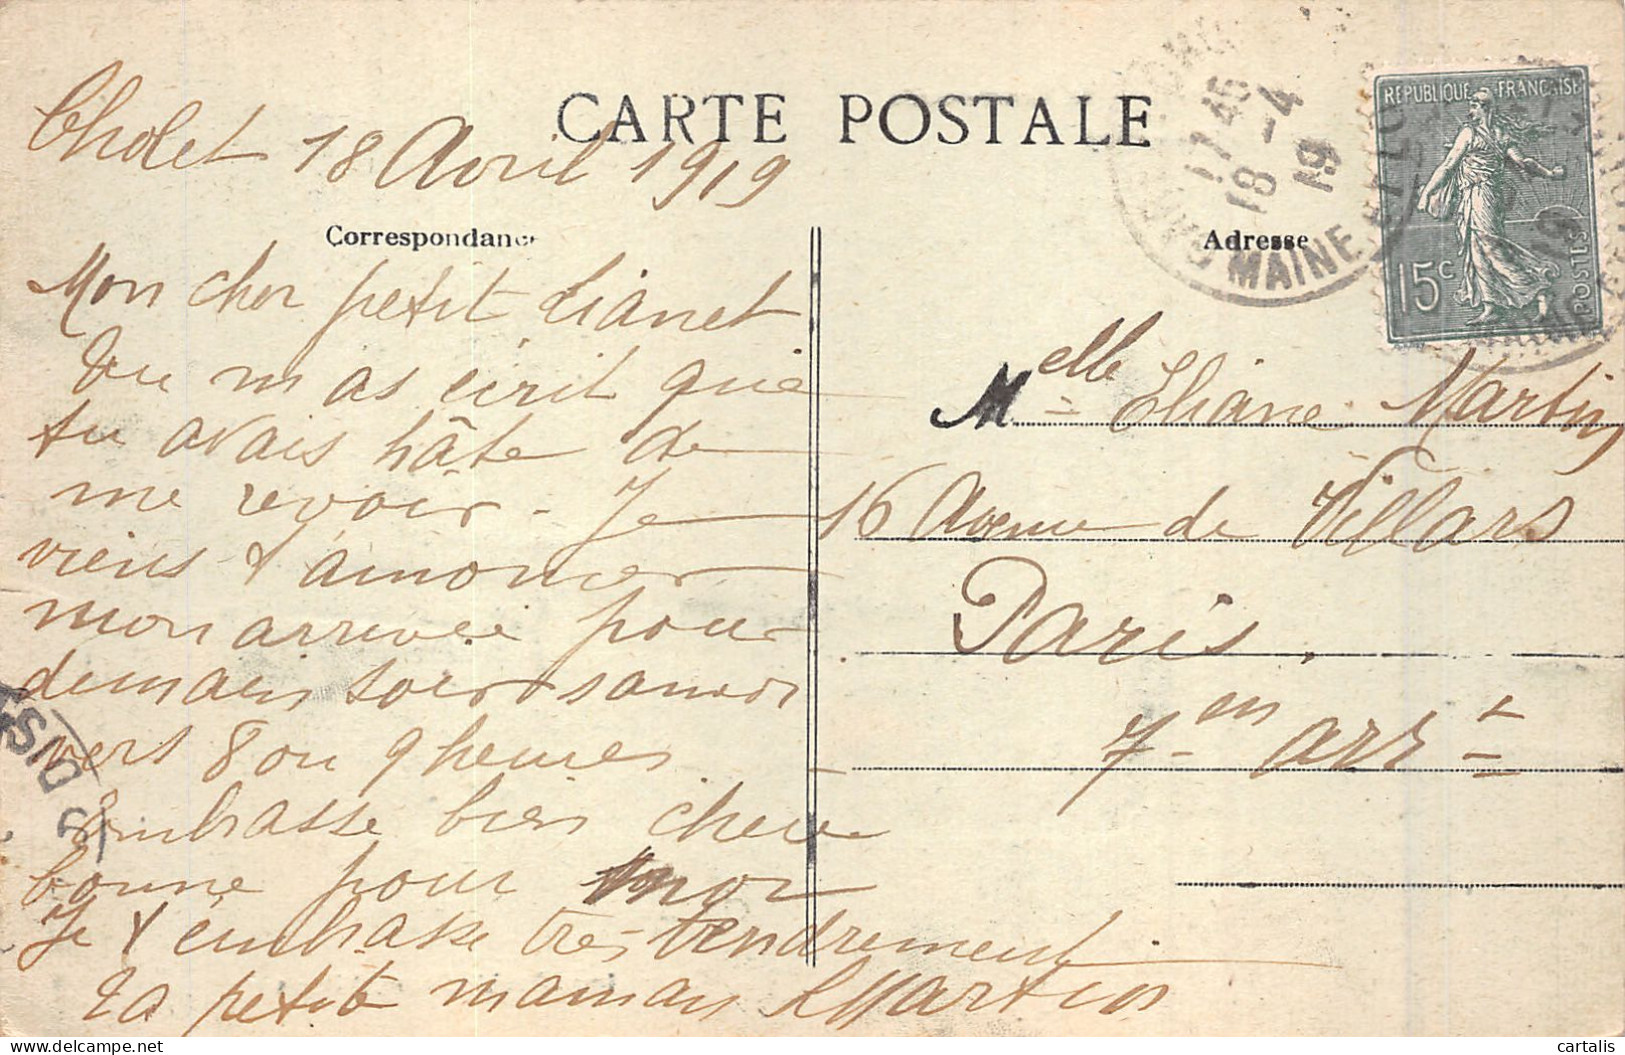 CARTE POSTALE
Cholet 18 Avril 1919
Correspondance
Mon cher petit Lianet
Tu m as écrit que
tu avais hâte de
me revoir - Je
viens t'annoncer
mon arrivée pour
demain soir samedi
vers 8 ou 9 heures
Embrasse bien chere
bonne pour moi
Je t'embrasse très tendrement
Ta petite maman Martin
17 45
18 -4
19
MAINE ET LOIRE
Adresse
REPUBLIQUE FRANÇAISE
15c
POSTES
Melle Eliane Martin
16 Avenue de Villars
Paris.
7 em arrt
DIST
cartalis